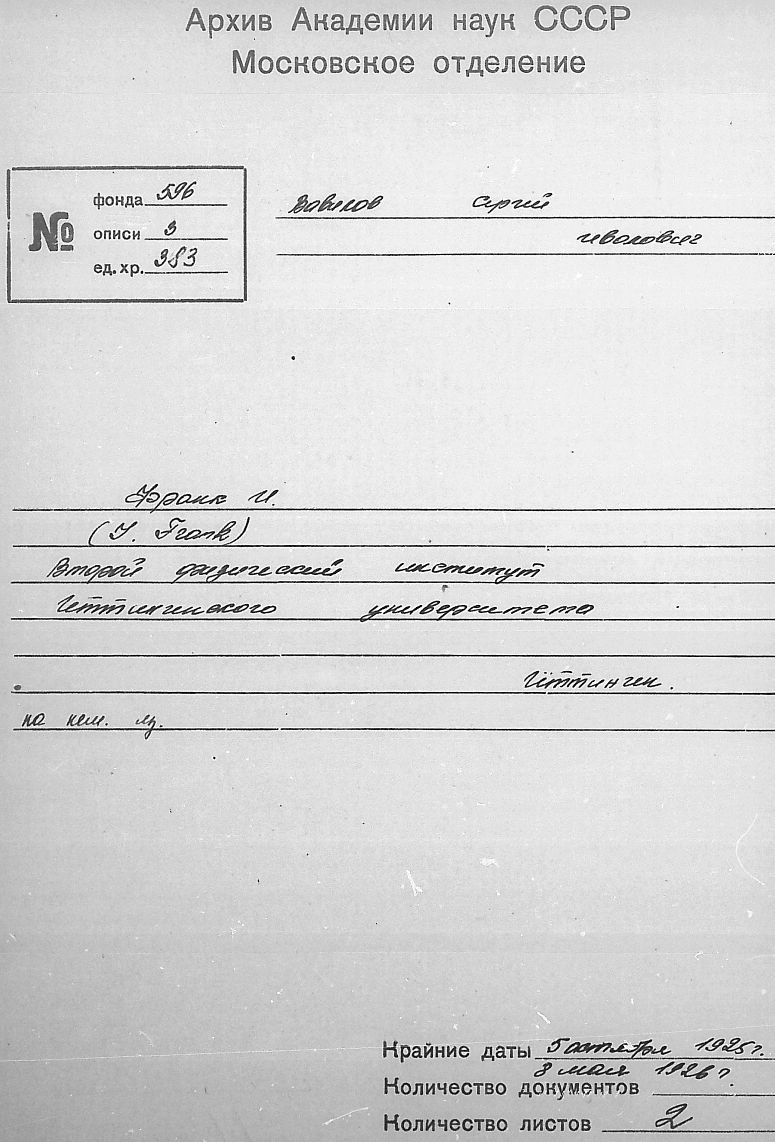 Архив Академии наук СССР
Московское отделение
№
фонда 596
описи 3
ед. хр. 383
Вавилов Сергей
Иванович
Франк И.
(J. Frank)
Второй физический институт
Гёттингенского университета
Гёттинген.
на нем. яз.
Крайние даты 5 октября 1925 г.
8 мая 1926 г.
Количество документов
Количество листов 2